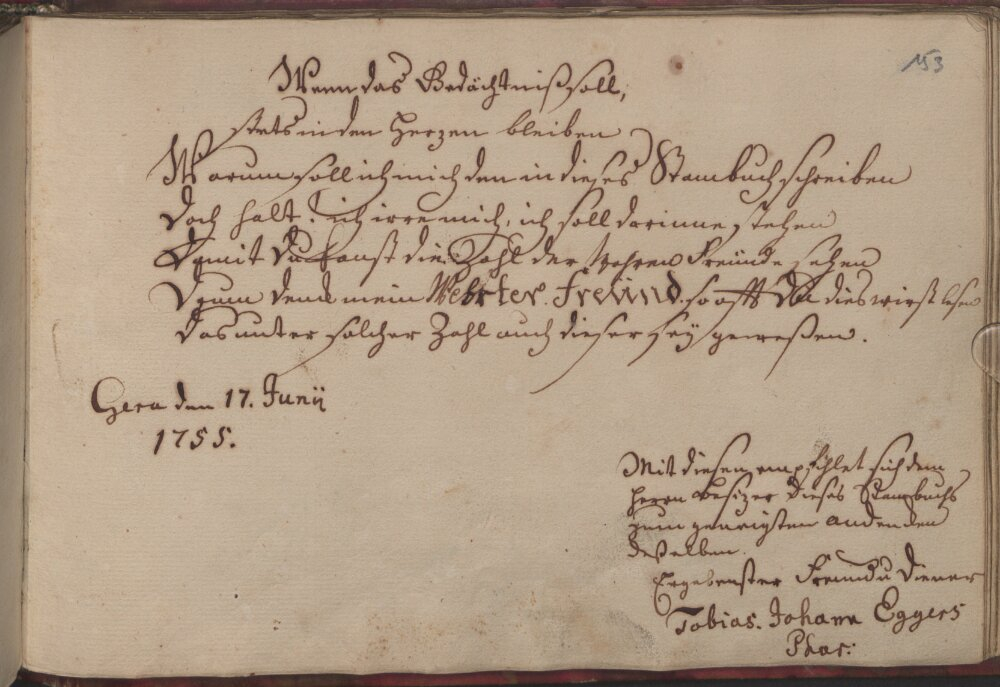 153
Wenn das Gedächtniß soll,
stets in den Herzen bleiben
Warum soll ich mich den in dieses Stambuch schreiben
Doch halt! ich irre mich, ich soll darinne stehen
Damit Du kanst die Zahl der Wahren Freünde sehen
Drum denck mein Wehrter Freünd so offt Du dies wirst lesen
Das unter solcher Zahl auch dieser seÿ geweßen.
Gera den 17. Junij
1755.
Mit diesen empfihlet sich dem
Herrn Besizer dieses Stambuchs
zum geneigten andencken
deßelben.
Ergebenster Freund u Diener
Tobias Johann Eggers
Phar: